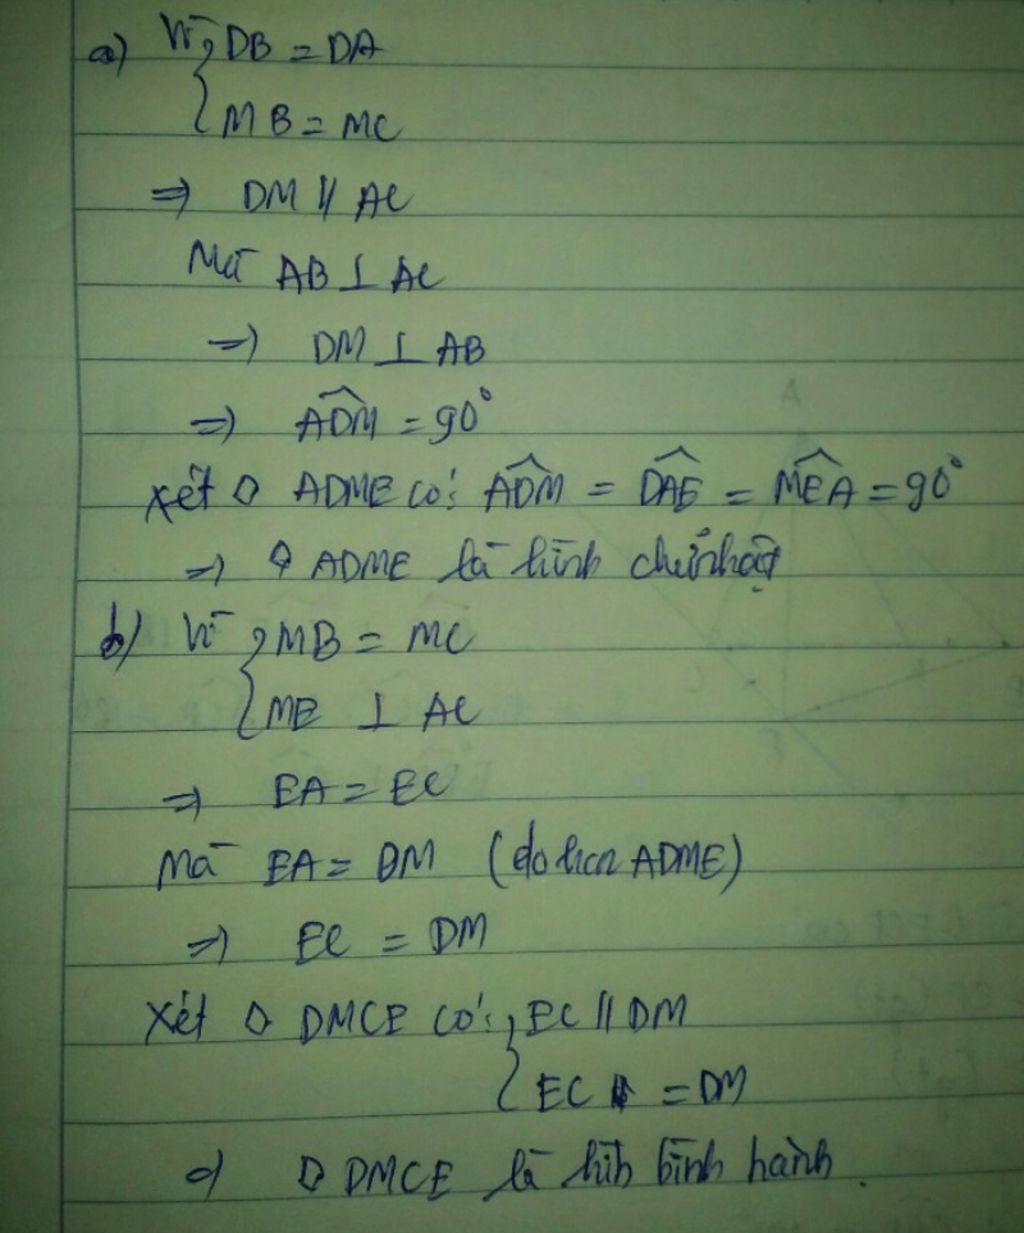 a) Vì { DB = DA
{ MB = MC
=> DM // AC
Mà AB ⊥ AC
=> DM ⊥ AB
=> ADM^ = 90°
Xét ◊ ADME có: ADM^ = DAE^ = MEA^ = 90°
=> ◊ ADME là hình chữ nhật
b) Vì { MB = MC
{ ME ⊥ AC
=> EA = EC
Mà EA = DM (do hcn ADME)
=> EC = DM
Xét ◊ DMCE có: { EC // DM
{ EC = DM
=> ◊ DMCE là hình bình hành.